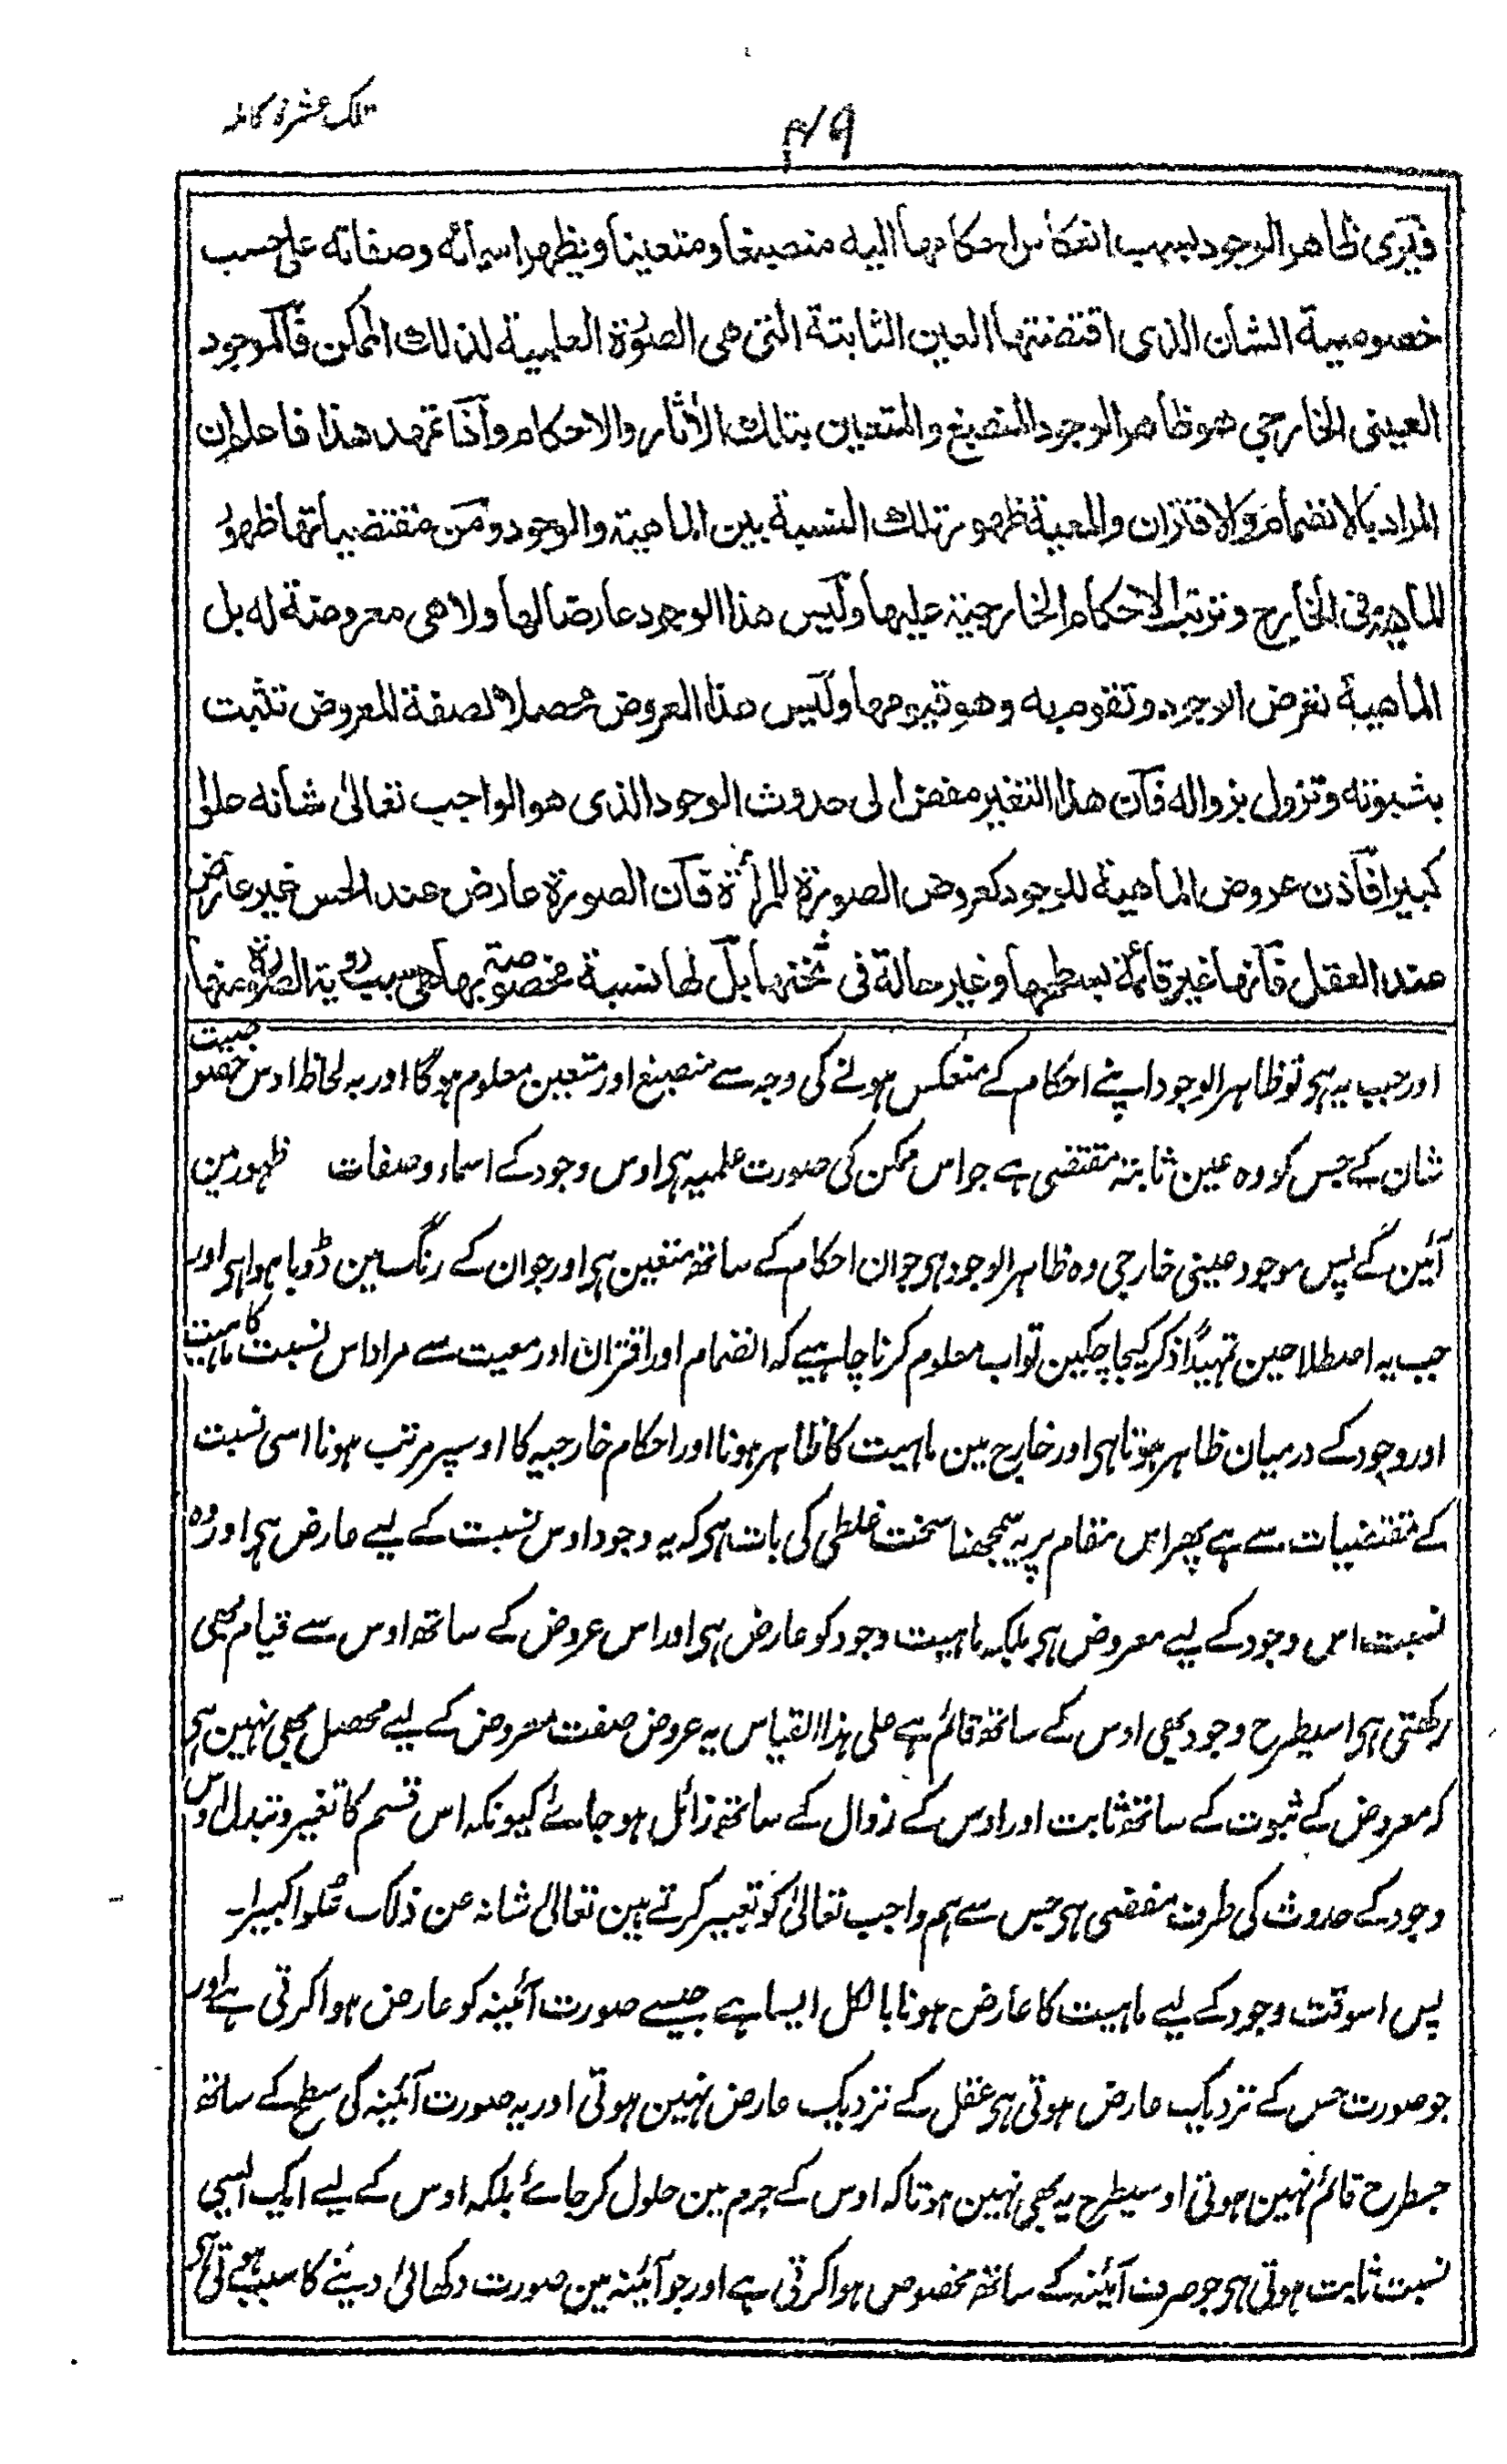 تلک عشرۃ کاملہ
۴۹
فیری ظاهر الوجود بسبب انعکاس احکامها الیه منصبغا ومتعینا ویظهر اسمائه وصفاته علی حسب
خصوصیة الشان الذی اقتضتها العین الثابتة التی هی الصورة العلمیة لذلك الممکن فالموجود
العینی الخارجی هو ظاهر الوجود المنصبغ والمتعین بتلك الآثار والاحکام واذا تمهد هذا فاعلم ان
المراد بالانضمام والاقتران والمعیة ظهور تلك النسبة بین الماهیة والوجود ومن مقتضیاتها ظهور
الماهیة فی الخارج وترتب الاحکام الخارجیة علیها ولیس هذا الوجود عارضا لها ولا هی معروضة له بل
الماهیة تعرض الوجود وتقوم به وهو قیومها ولیس هذا العروض محصلا لصفة المعروض تثبت
بثبوته وتزول بزواله فان هذا التغیر مفض الی حدوث الوجود الذی هو الواجب تعالیٰ شانه علوا
کبیرا فاذن عروض الماهیة للوجود کعروض الصورة للمرأة فان الصورة عارض عند الحس غیر عارض
عند العقل فانها غیر قائمة بسطحها وغیر حالة فی ثخنها بل لها نسبة مخصوصة بها هی سبب رویة الصورة منها
اور جب یہ ہی تو ظاہر الوجود اپنے احکام کے منعکس ہونے کی وجہ سے منصبغ اور متعین معلوم ہوگا اور بہ لحاظ اوس خصوصیت
شان کے جس کو وہ عین ثابتہ مقتضی ہے جو اس ممکن کی صورت علمیہ ہی اوس وجود کے اسماء وصفات ظہور مین
آئین گے پس موجود عینی خارجی وہ ظاہر الوجود ہی جو ان احکام کے ساتھ متعین ہی اور جو ان کے رنگ مین ڈوبا ہوا ہی اور
جب یہ اصطلاحین تمہیداً ذکر کیجا چکین تو اب معلوم کرنا چاہیے کہ انضمام اور اقتران اور معیت سے مراد اس نسبت کا ماہیت
اور وجود کے درمیان ظاہر ہوتا ہی اور خارج مین ماہیت کا ظاہر ہونا اور احکام خارجیہ کا اوسپر مرتب ہونا اسی نسبت
کے مقتضیات سے ہے پھر اس مقام پر یہ سمجھنا سخت غلطی کی بات ہی کہ یہ وجود اوس نسبت کے لیے عارض ہی اور وہ
نسبت اس وجود کے لیے معروض ہی بلکہ ماہیت وجود کو عارض ہی اور اس عروض کے ساتھ اوس سے قیام بھی
رکھتی ہی اسیطرح وجود بھی اوس کے ساتھ قائم ہے علی ہذا القیاس یہ عروض صفت معروض کے لیے محصل بھی نہین ہی
کہ معروض کے ثبوت کے ساتھ ثابت اور اوس کے زوال کے ساتھ زائل ہو جائے کیونکہ اس قسم کا تغیر و تبدل اوس
وجود کے حدوث کی طرف مفضی ہی جس سے ہم واجب تعالیٰ کو تعبیر کرتے ہین تعالیٰ شانہ عن ذلک علوا کبیرا۔
پس اسوقت وجود کے لیے ماہیت کا عارض ہونا بالکل ایسا ہے جیسے صورت آئینہ کو عارض ہوا کرتی ہے اور
جو صورت حس کے نزدیک عارض ہوتی ہی عقل کے نزدیک عارض نہین ہوتی اور یہ صورت آئینہ کی سطح کے ساتھ
جسطرح قائم نہین ہوتی اوسیطرح یہ بھی نہین ہوتا کہ اوس کے جرم مین حلول کر جائے بلکہ اوس کے لیے ایک ایسی
نسبت ثابت ہوتی ہی جو صرف آئینہ کے ساتھ مخصوص ہوا کرتی ہے اور جو آئینہ مین صورت دکھائی دینے کا سبب ہوتی ہی